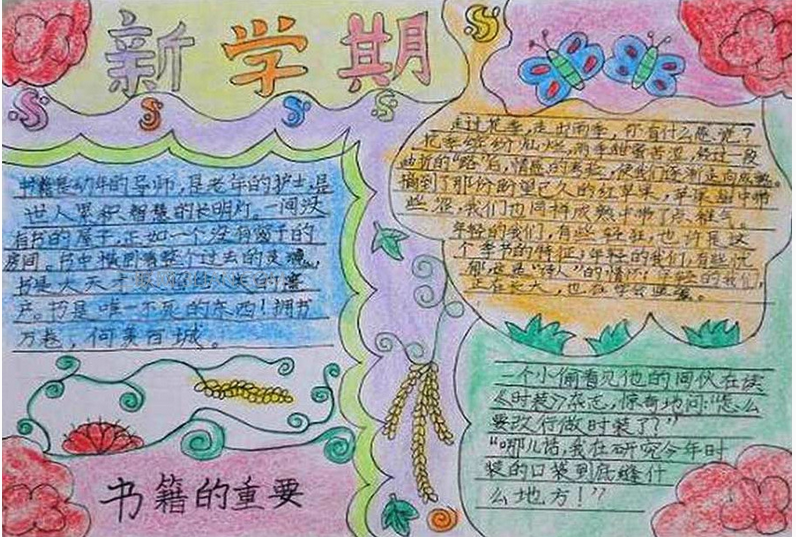 新学期
书籍是幼年的导师,是老年的护士,是
世人累积智慧的长明灯。一间没
有书的屋子,正如一个没有窗子的
房间。书中横卧着整个过去的灵魂。
书是天才留给人类的遗
产。书是唯一不死的东西!拥书
万卷,何美百城。
书籍的重要
走过花季,走出雨季,你有什么感说?
花季缤纷灿烂,雨季甜蜜苦涩,经过一段
曲折的"路"后,情感的考验,使我们逐渐走向成熟。
摘到了那份盼望已久的红苹果,苹果甜中带
些涩,我们也同样成熟中带了点稚气。
年轻的我们,有些轻狂,也许是这
个季节的特征;年轻的我们,有些忧
郁,这是"诗人"的情怀;年轻的我们,
正在长大,也在学会坚强。
一个小偷看见他的同伙在读
《时装》杂志,惊奇地问:"怎么
要改行做时装了?"
"哪儿话,我在研究今年时
装的口袋到底缝什
么地方!"